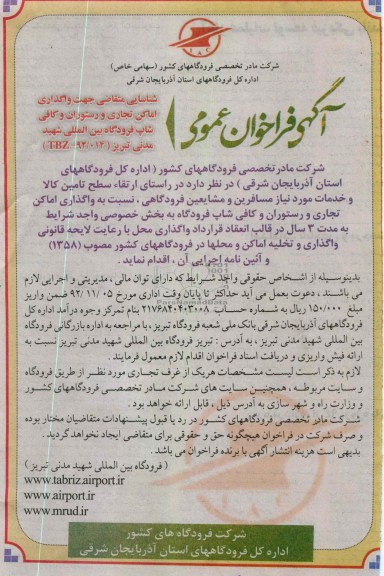 شرکت مادر تخصصی فرودگاههای کشور (سهامی خاص)
اداره کل فرودگاههای استان آذربایجان شرقی
آگهی فراخوان عمومی
شناسایی متقاضی جهت واگذاری
اماکن تجاری و رستوران و کافی
شاپ فرودگاه بین المللی شهید
مدنی تبریز (TBZ-۹۲/۰۱۲)
شرکت مادر تخصصی فرودگاههای کشور ( اداره کل فرودگاههای
استان آذربایجان شرقی ) در نظر دارد در راستای ارتقاء سطح تامین کالا
و خدمات مورد نیاز مسافرین و مشایعین فرودگاهی ، نسبت به واگذاری اماکن
تجاری و رستوران و کافی شاپ فرودگاه به بخش خصوصی واجد شرایط
به مدت ۳ سال در قالب انعقاد قرارداد واگذاری محل با رعایت لایحه قانونی
واگذاری و تخلیه اماکن و محلها در فرودگاههای کشور مصوب (۱۳۵۸)
و آئین نامه اجرایی آن ، اقدام نماید .
بدینوسیله از اشخاص حقوقی واجد شرایط که دارای توان مالی ، مدیریتی و اجرایی لازم
می باشند ، دعوت بعمل می آید حداکثر تا پایان وقت اداری مورخ ۹۲/۱۱/۰۵ ضمن واریز
مبلغ ۱۵۰/۰۰۰ ریال به شماره حساب ۲۱۷۶۸۴۰۴۰۳۰۰۸ بنام تمرکز وجوه درآمد اداره کل
فرودگاههای آذربایجان شرقی بانک ملی شعبه فرودگاه تبریز ، با مراجعه به اداره بازرگانی فرودگاه
بین المللی شهید مدنی تبریز ، به آدرس : تبریز فرودگاه بین المللی شهید مدنی تبریز نسبت به
ارائه فیش واریزی و دریافت اسناد فراخوان اقدام لازم معمول فرمایند .
لازم به ذکر است لیست مشخصات هریک از غرف تجاری مورد نظر از طریق فرودگاه
و سایت مربوطه ، همچنین سایت های شرکت مادر تخصصی فرودگاههای کشور
و وزارت راه و شهر سازی به آدرس ذیل ، قابل ارائه خواهد بود .
شرکت مادر تخصصی فرودگاههای کشور در رد یا قبول پیشنهادات متقاضیان مختار بوده
و صرف شرکت در فراخوان هیچگونه حق و حقوقی برای متقاضی ایجاد نخواهد گردید .
بدیهی است هزینه انتشار آگهی با برنده فراخوان می باشد .
( فرودگاه بین المللی شهید مدنی تبریز )
www.tabriz.airport.ir
www.airport.ir
www.mrud.ir
شرکت فرودگاه های کشور
اداره کل فرودگاههای استان آذربایجان شرقی